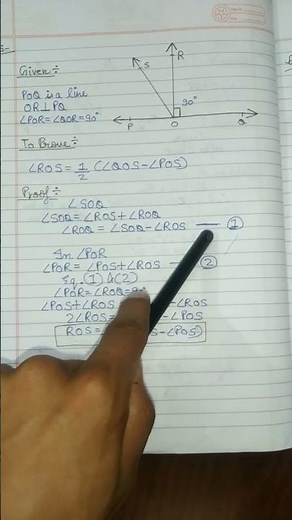 Given ÷
POQ is a line
OR ⊥ PQ
∠POR = ∠QOR = 90°
S
R
90°
P
O
Q
To Prove ÷
∠ROS = 1/2 (∠QOS - ∠POS)
Proof ÷
∠SOQ
∠SOQ = ∠ROS + ∠ROQ
∠ROQ = ∠SOQ - ∠ROS — 1
In ∠POR
∠POR = ∠POS + ∠ROS — 2
Eq. (1) & (2)
∠POR = ∠ROQ = 90°
∠POS + ∠ROS - ∠ROS
2∠ROS = - ∠POS
ROS = - ∠POS)